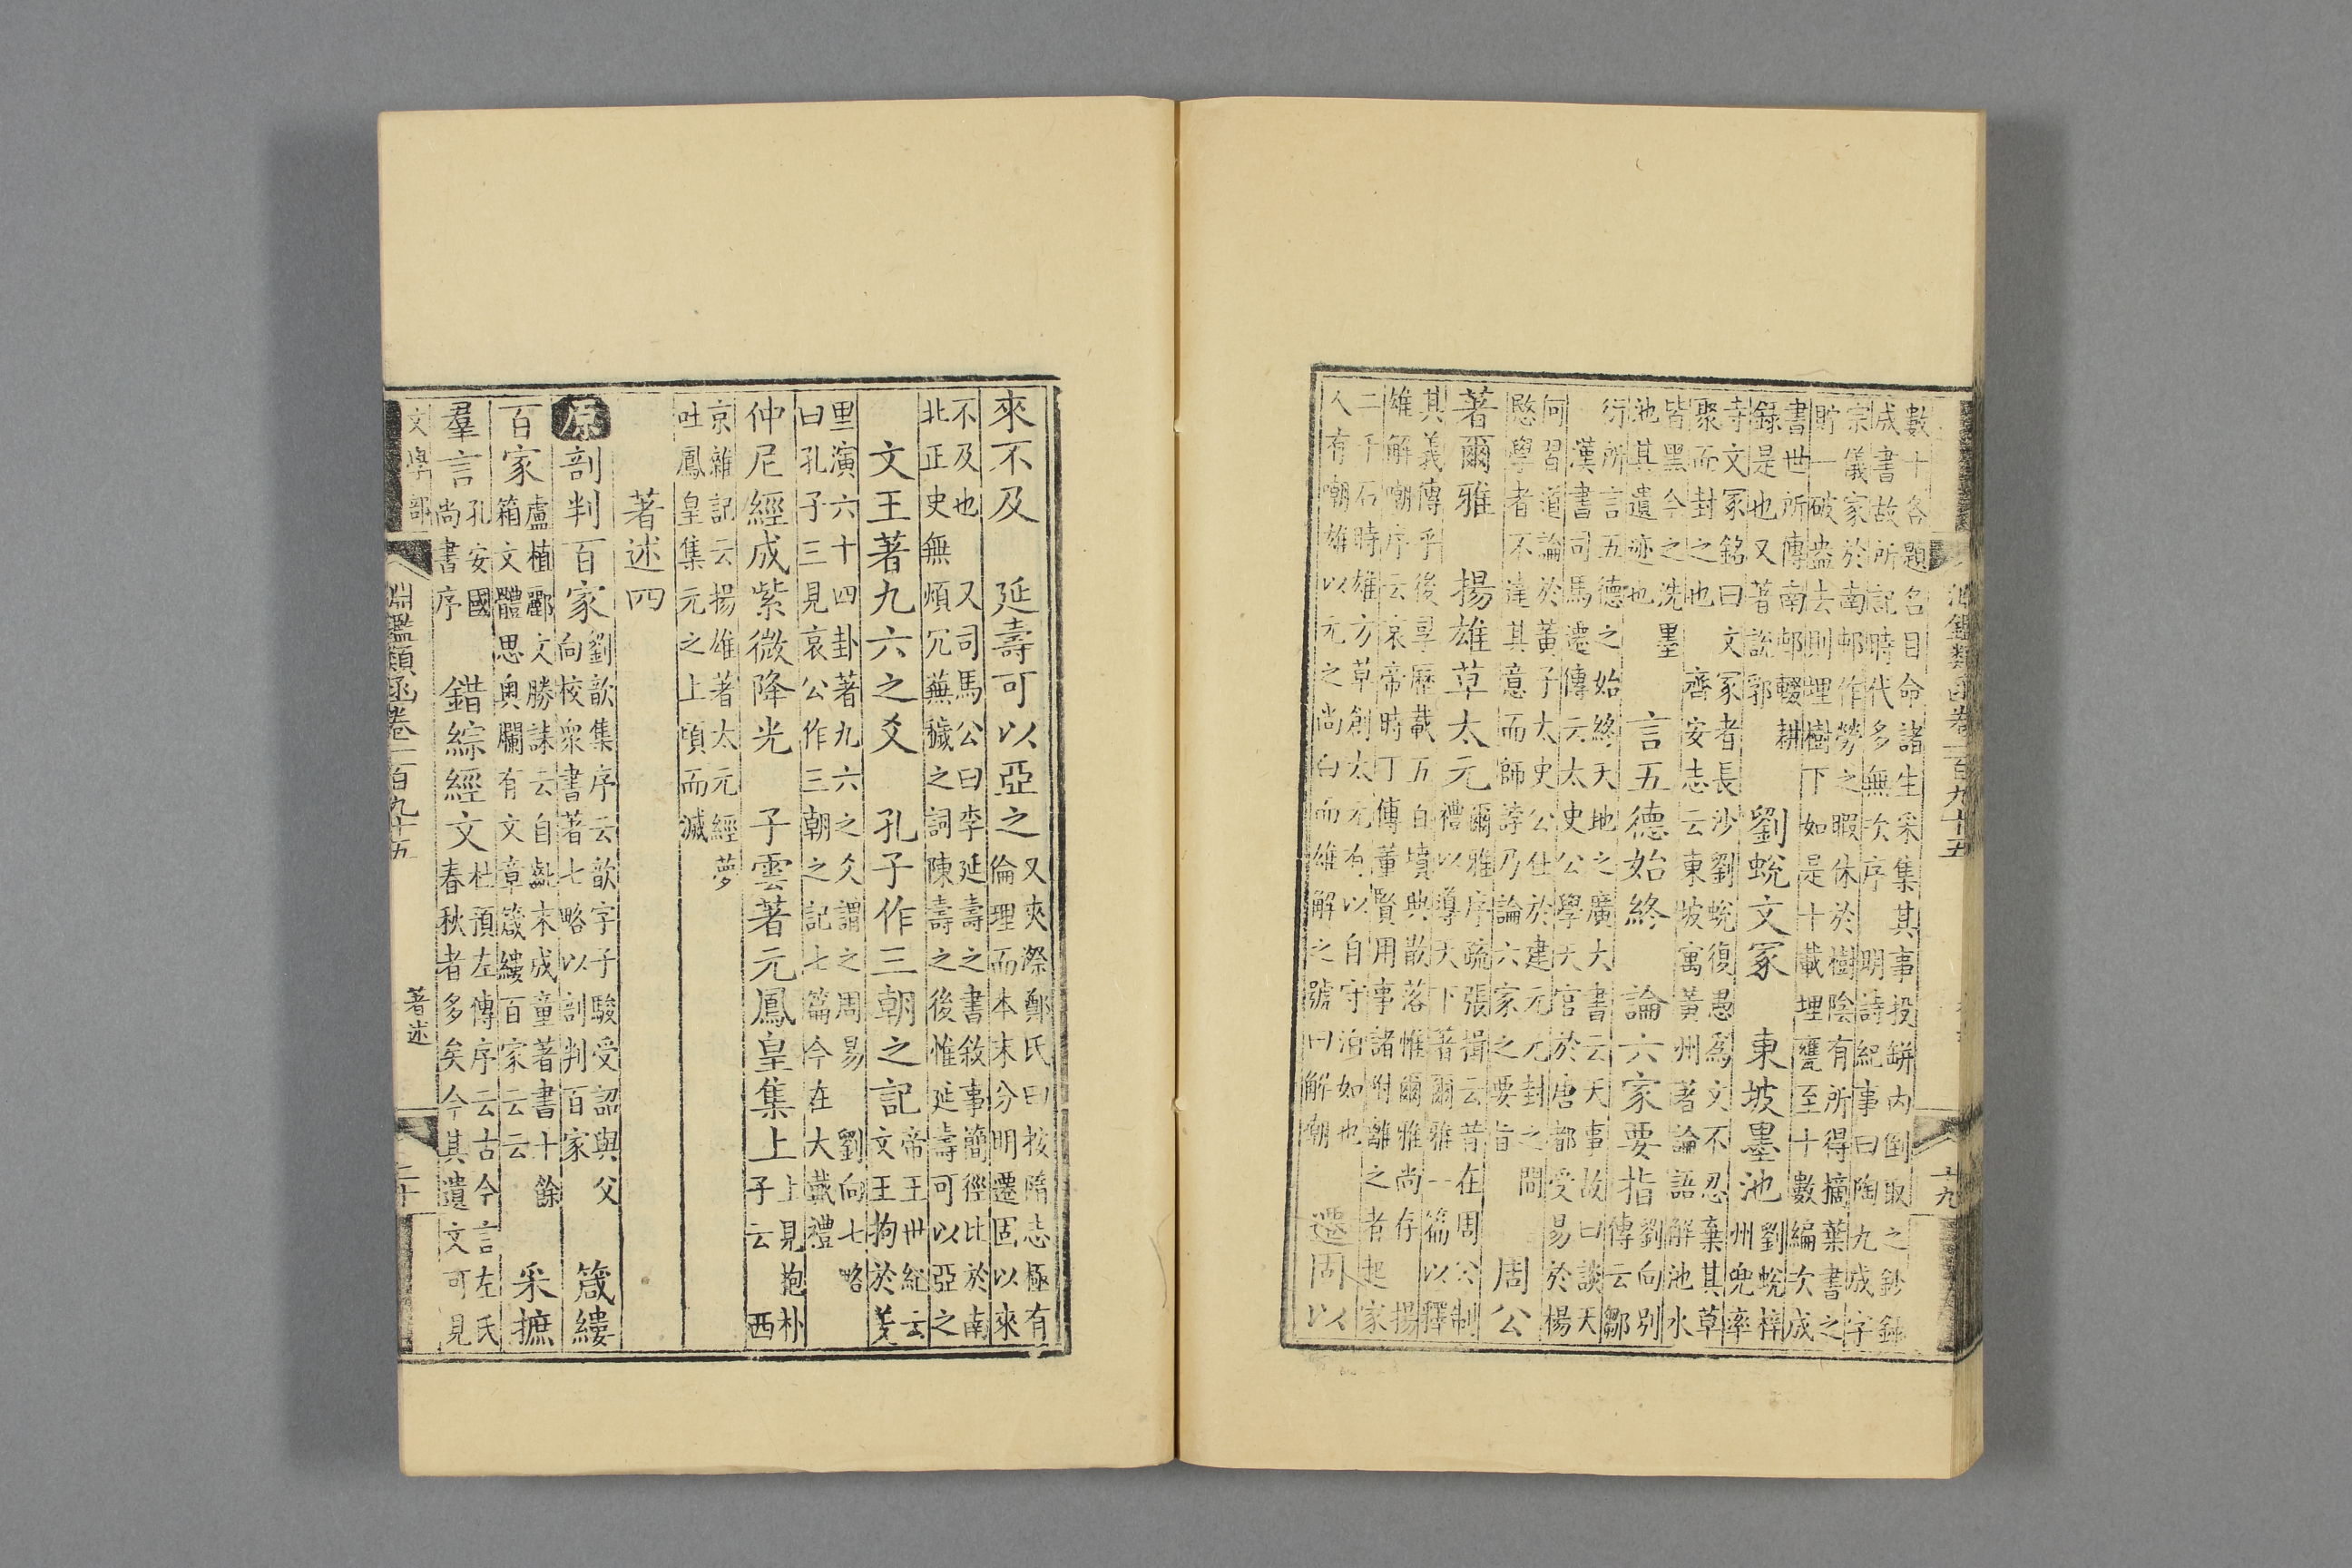 淵鑑類函卷一百九十五 十九
數十各題名目命諸生采集其事投缾内倒取之鈔錄
成書故所記時代多無次序 明詩紀事曰陶九成字
宗儀家於南邨作勞之暇休於樹陰有所得摘葉書之
貯一破盎去則埋樹下如是十載埋甕至十數編次成
書世所傳南邨輟耕
錄是也又著說郛
劉蛻文冢 東坡墨池
劉蛻梓
州兜率
寺文冢銘曰文冢者長沙劉蛻復愚爲文不忍棄其草
聚而封之也 齊安志云東坡寓黃州著論語解池水
皆黑今之洗墨
池其遺迹也
言五德始終 論六家要指
劉向別
傳云鄒
衍所言五德之始終天地之廣大書云天事故曰談天
漢書司馬遷傳云太史公學天官於唐都受易於楊
何習道論於黃子太史公仕於建元元封之間
愍學者不達其意而師誖乃論六家之要旨
周公
著爾雅 揚雄草太元
爾雅序疏張揖云昔在周公制
禮以導天下著爾雅一篇以釋
其義傳乎後孠歷載五百墳典散落惟爾雅尚存 揚
雄解嘲序云哀帝時丁傅董賢用事諸附離之者起家
二千石時雄方草創太元有以自守泊如也
人有嘲雄以元之尚白而雄解之號曰解嘲
遷固以
來不及 延壽可以亞之
又夾漈鄭氏曰按隋志極有
倫理而本末分明遷固以來
不及也 又司馬公曰李延壽之書敘事簡徑比於南
北正史無煩冗蕪穢之詞陳壽之後惟延壽可以亞之
文王著九六之爻 孔子作三朝之記
帝王世紀云
文王拘於羑
里演六十四卦著九六之爻謂之周易 劉向七略
曰孔子三見哀公作三朝之記七篇今在大戴禮
仲尼經成紫微降光 子雲著元鳳皇集上
上見抱朴
子云 西
京雜記云揚雄著太元經夢
吐鳳皇集元之上頃而滅
著述四
原 剖判百家
劉歆集序云歆字子駿受詔與父
向校衆書著七略以剖判百家
箴縷
百家
盧植酈文勝誄云自齔未成童著書十餘
箱文體思奧爛有文章箴縷百家云云
采摭
羣言
孔安國
尚書序
錯綜經文
杜預左傳序云古今言左氏
春秋者多矣今其遺文可見
文學部 淵鑑類函卷一百九十五 著述 二十